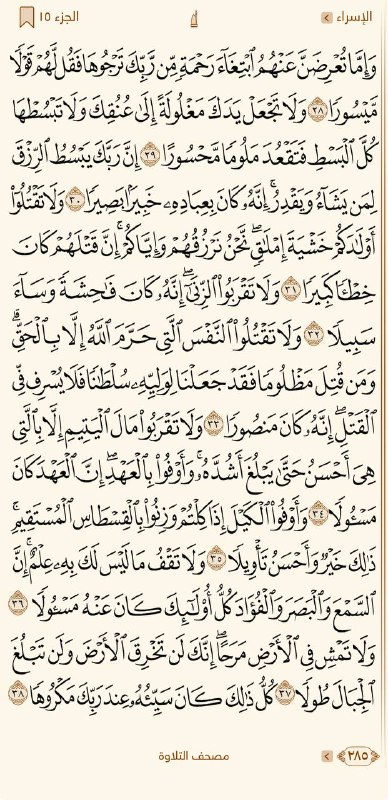 الإسراء
الجزء ١٥
وَإِمَّا تُعْرِضَنَّ عَنْهُمُ ٱبْتِغَآءَ رَحْمَةٍ مِّن رَّبِّكَ تَرْجُوهَا فَقُل لَّهُمْ قَوْلًا
مَّيْسُورًا ٢٨ وَلَا تَجْعَلْ يَدَكَ مَغْلُولَةً إِلَىٰ عُنُقِكَ وَلَا تَبْسُطْهَا
كُلَّ ٱلْبَسْطِ فَتَقْعُدَ مَلُومًا مَّحْسُورًا ٢٩ إِنَّ رَبَّكَ يَبْسُطُ ٱلرِّزْقَ
لِمَن يَشَآءُ وَيَقْدِرُ ۚ إِنَّهُۥ كَانَ بِعِبَادِهِۦ خَبِيرًۢا بَصِيرًا ٣٠ وَلَا تَقْتُلُوٓا۟
أَوْلَـٰدَكُمْ خَشْيَةَ إِمْلَـٰقٍ ۖ نَّحْنُ نَرْزُقُهُمْ وَإِيَّاكُمْ ۚ إِنَّ قَتْلَهُمْ كَانَ
خِطْـًٔا كَبِيرًا ٣١ وَلَا تَقْرَبُوا۟ ٱلزِّنَىٰٓ ۖ إِنَّهُۥ كَانَ فَـٰحِشَةً وَسَآءَ
سَبِيلًا ٣٢ وَلَا تَقْتُلُوا۟ ٱلنَّفْسَ ٱلَّتِى حَرَّمَ ٱللَّهُ إِلَّا بِٱلْحَقِّ ۗ
وَمَن قُتِلَ مَظْلُومًا فَقَدْ جَعَلْنَا لِوَلِيِّهِۦ سُلْطَـٰنًا فَلَا يُسْرِف فِّى
ٱلْقَتْلِ ۖ إِنَّهُۥ كَانَ مَنصُورًا ٣٣ وَلَا تَقْرَبُوا۟ مَالَ ٱلْيَتِيمِ إِلَّا بِٱلَّتِى
هِىَ أَحْسَنُ حَتَّىٰ يَبْلُغَ أَشُدَّهُۥ ۚ وَأَوْفُوا۟ بِٱلْعَهْدِ ۖ إِنَّ ٱلْعَهْدَ كَانَ
مَسْـُٔولًا ٣٤ وَأَوْفُوا۟ ٱلْكَيْلَ إِذَا كِلْتُمْ وَزِنُوا۟ بِٱلْقِسْطَاسِ ٱلْمُسْتَقِيمِ ۚ
ذَٰلِكَ خَيْرٌ وَأَحْسَنُ تَأْوِيلًا ٣٥ وَلَا تَقْفُ مَا لَيْسَ لَكَ بِهِۦ عِلْمٌ ۚ إِنَّ
ٱلسَّمْعَ وَٱلْبَصَرَ وَٱلْفُؤَادَ كُلُّ أُو۟لَـٰٓئِكَ كَانَ عَنْهُ مَسْـُٔولًا ٣٦
وَلَا تَمْشِ فِى ٱلْأَرْضِ مَرَحًا ۖ إِنَّكَ لَن تَخْرِقَ ٱلْأَرْضَ وَلَن تَبْلُغَ
ٱلْجِبَالَ طُولًا ٣٧ كُلُّ ذَٰلِكَ كَانَ سَيِّئُهُۥ عِندَ رَبِّكَ مَكْرُوهًا ٣٨
٢٨٥
مصحف التلاوة